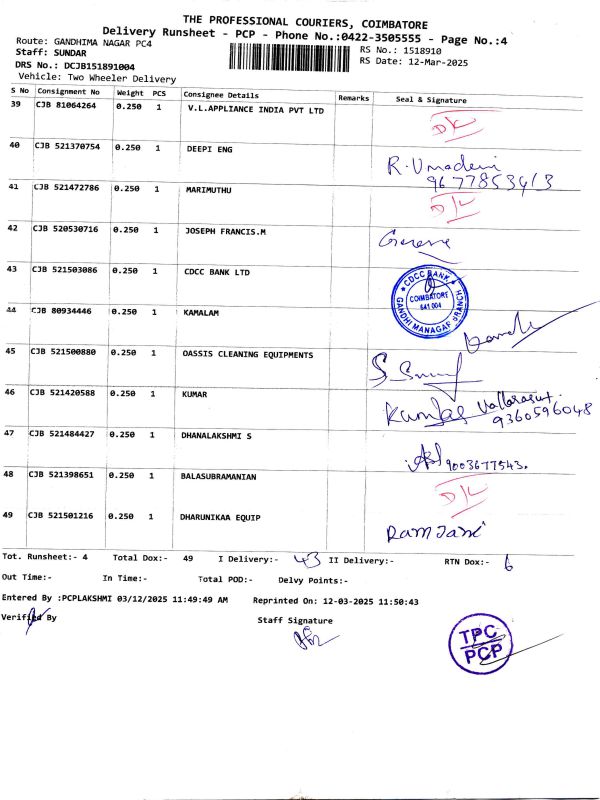 THE PROFESSIONAL COURIERS, COIMBATORE
Delivery Runsheet - PCP - Phone No.:0422-3505555 - Page No.:4
Route: GANDHIMA NAGAR PC4
RS No.: 1518910
Staff: SUNDAR
RS Date: 12-Mar-2025
DRS No.: DCJB151891004
Vehicle: Two Wheeler Delivery
S No Consignment No Weight PCS Consignee Details Remarks Seal & Signature
39 CJB 81064264 0.250 1 V.L.APPLIANCE INDIA PVT LTD
D/L
40 CJB 521370754 0.250 1 DEEPI ENG
R. Umadevi
9677853413
41 CJB 521472786 0.250 1 MARIMUTHU
D/L
42 CJB 520530716 0.250 1 JOSEPH FRANCIS.M
43 CJB 521503086 0.250 1 CDCC BANK LTD
CDCC BANK
COIMBATORE
641 004
GANDHI MANAGAR BRANCH
44 CJB 80934446 0.250 1 KAMALAM
45 CJB 521500880 0.250 1 OASSIS CLEANING EQUIPMENTS
46 CJB 521420588 0.250 1 KUMAR
9360596048
47 CJB 521484427 0.250 1 DHANALAKSHMI S
9003677543.
48 CJB 521398651 0.250 1 BALASUBRAMANIAN
D/L
49 CJB 521501216 0.250 1 DHARUNIKAA EQUIP
Ramjani
Tot. Runsheet:- 4 Total Dox:- 49 I Delivery:- 43 II Delivery:- RTN Dox:- 6
Out Time:- In Time:- Total POD:- Delvy Points:-
Entered By :PCPLAKSHMI 03/12/2025 11:49:49 AM Reprinted On: 12-03-2025 11:50:43
Verified By Staff Signature
TPC
PCP